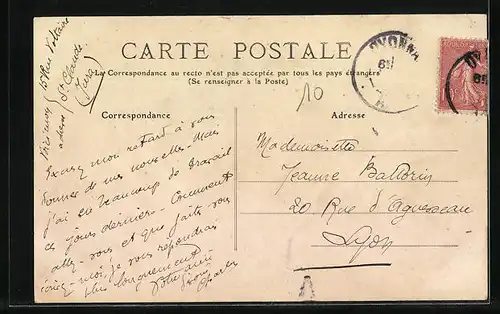 CARTE POSTALE
La Correspondance au recto n'est pas acceptée par tous les pays étrangers
(Se renseigner à la Poste)
10
OYONNA
Correspondance
Adresse
Excusez mon retard à vous
donner de mes nouvelles. Mais
j'ai eu beaucoup de travail
ces jours derniers. Comment
allez-vous et que faites vous
écrivez-moi, je vous répondrai
plus longuement
Votre ami
Charles
Mademoiselle
Jeanne
20 Rue d'Aguesseau
Lyon
Rue Voltaire
St Claude
(Jura)